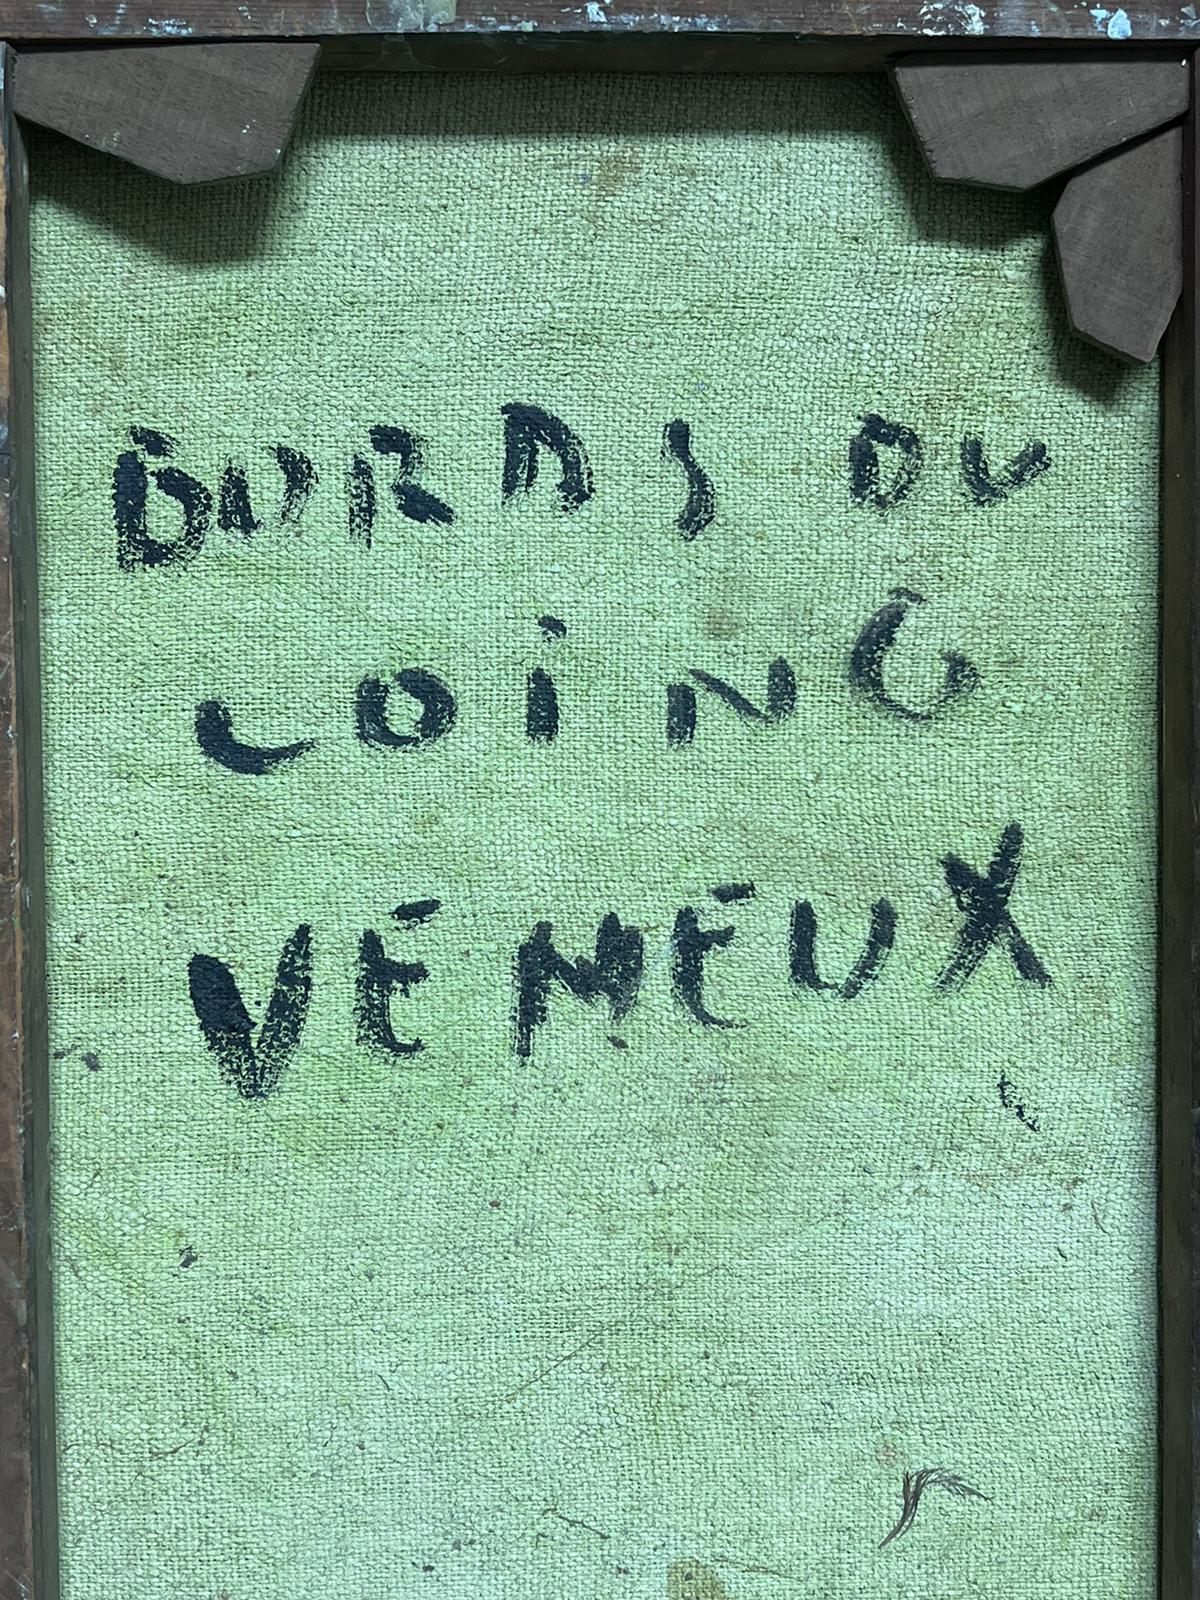 BORDS DU
LOiNG
VÉNÉUX